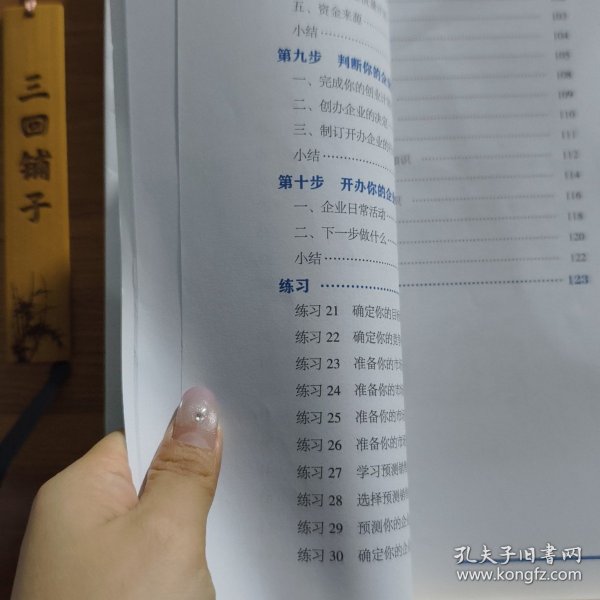 三回铺子
五、资金来源
小结
第九步 判断你的企
一、完成你的创业计
二、创办企业的决定
三、制订开办企业的
小结
第十步 开办你的企
一、企业日常活动
二、下一步做什么
小结
练习
练习 21 确定你的目
练习 22 确定你的竞
练习 23 准备你的市
练习 24 准备你的市
练习 25 准备你的市
练习 26 准备你的市
练习 27 学习预测销
练习 28 选择预测销
练习 29 预测你的企
练习 30 确定你的企
103
104
108
109
110
111
识 112
114
116
118
120
122
123
孔夫子旧书网
www.kongfz.com